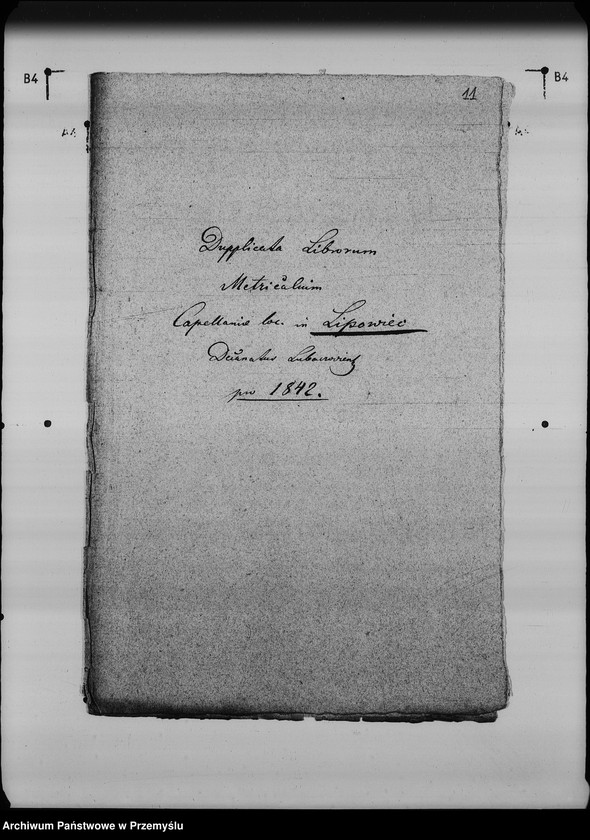 B4
B4
11
Dupplicata Librorum
Metricalium
Capellanie loc. in Lipowiec
Decanatus
pro 1842.
Archiwum Państwowe w Przemyślu